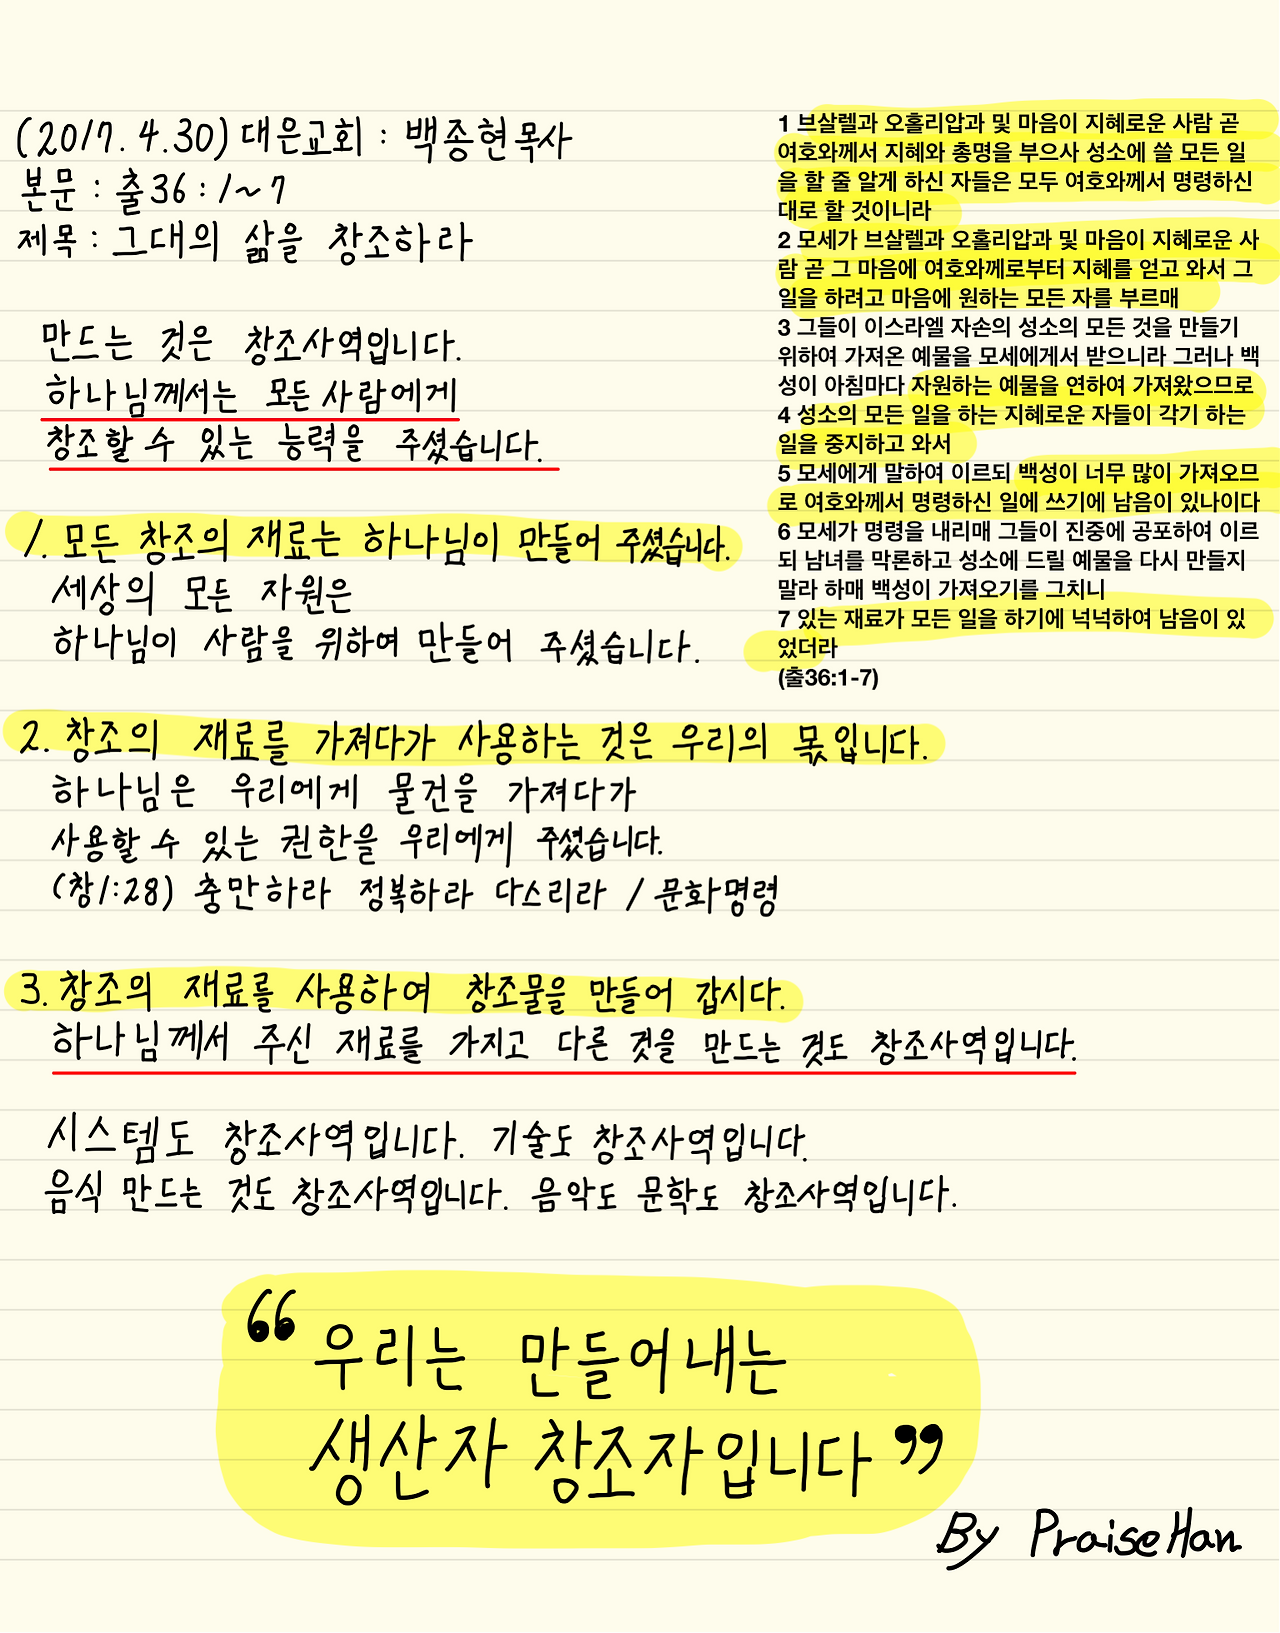 (2017. 4. 30) 대은교회 : 백종현목사
본문 : 출36 : 1~7
제목 : 그대의 삶을 창조하라
만드는 것은 창조사역입니다.
하나님께서는 모든 사람에게
창조할 수 있는 능력을 주셨습니다.
1. 모든 창조의 재료는 하나님이 만들어 주셨습니다.
세상의 모든 자원은
하나님이 사람을 위하여 만들어 주셨습니다.
1 브살렐과 오홀리압과 및 마음이 지혜로운 사람 곧
여호와께서 지혜와 총명을 부으사 성소에 쓸 모든 일
을 할 줄 알게 하신 자들은 모두 여호와께서 명령하신
대로 할 것이니라
2 모세가 브살렐과 오홀리압과 및 마음이 지혜로운 사
람 곧 그 마음에 여호와께로부터 지혜를 얻고 와서 그
일을 하려고 마음에 원하는 모든 자를 부르매
3 그들이 이스라엘 자손의 성소의 모든 것을 만들기
위하여 가져온 예물을 모세에게서 받으니라 그러나 백
성이 아침마다 자원하는 예물을 연하여 가져왔으므로
4 성소의 모든 일을 하는 지혜로운 자들이 각기 하는
일을 중지하고 와서
5 모세에게 말하여 이르되 백성이 너무 많이 가져오므
로 여호와께서 명령하신 일에 쓰기에 남음이 있나이다
6 모세가 명령을 내리매 그들이 진중에 공포하여 이르
되 남녀를 막론하고 성소에 드릴 예물을 다시 만들지
말라 하매 백성이 가져오기를 그치니
7 있는 재료가 모든 일을 하기에 넉넉하여 남음이 있
었더라
(출36:1-7)
2. 창조의 재료를 가져다가 사용하는 것은 우리의 몫입니다.
하나님은 우리에게 물건을 가져다가
사용할 수 있는 권한을 우리에게 주셨습니다.
(창1:28) 충만하라 정복하라 다스리라 / 문화명령
3. 창조의 재료를 사용하여 창조물을 만들어 갑시다.
하나님께서 주신 재료를 가지고 다른 것을 만드는 것도 창조사역입니다.
시스템도 창조사역입니다. 기술도 창조사역입니다.
음식 만드는 것도 창조사역입니다. 음악도 문학도 창조사역입니다.
“ 우리는 만들어내는
생산자 창조자입니다 ”
By PraiseHan